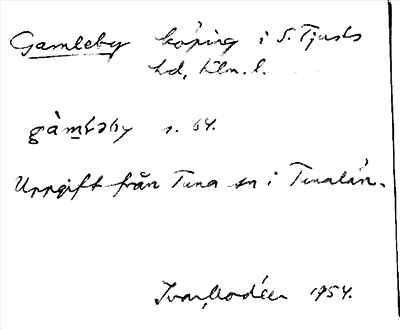 Gamleby köping i S. Tjusts
hd, Klm. l.
gàmḷəby s. 64.
Uppgift från Tuna sn i Tunalän.
Ivar Modéer 1954.